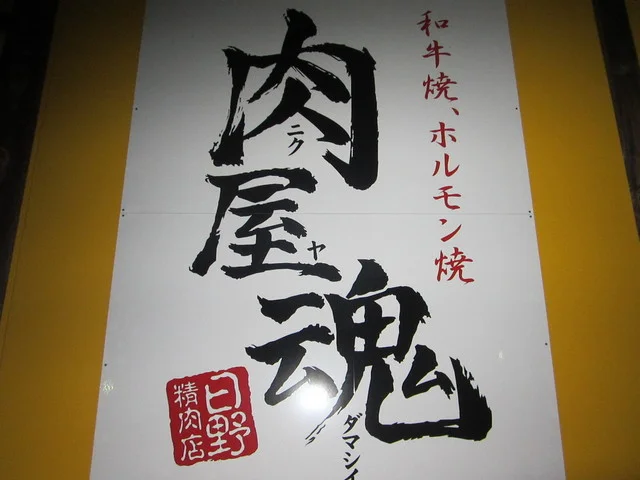 和牛焼、ホルモン焼
肉屋魂
ニク
ヤ
ダマシイ
日野
精肉店